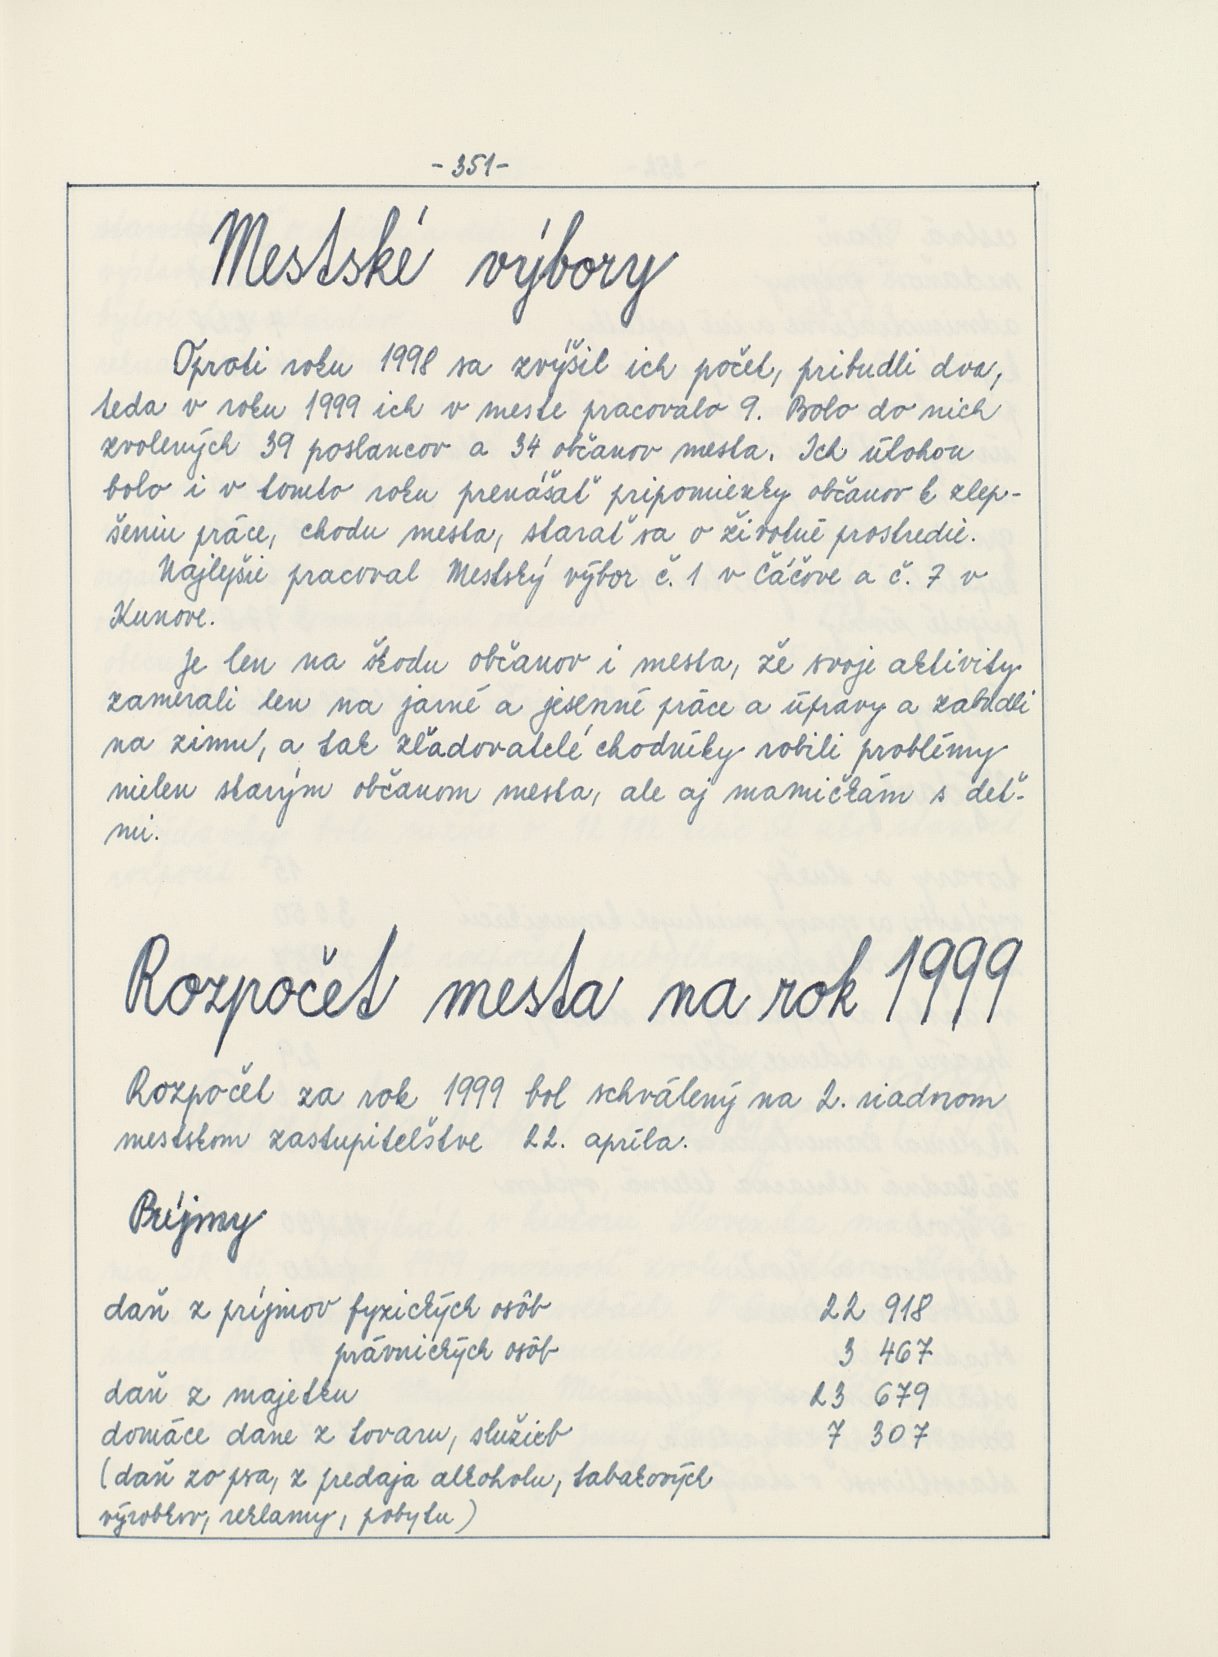 - 351 -
Mestské výbory
Oproti roku 1998 sa zvýšil ich počet, pribudli dva,
teda v roku 1999 ich v meste pracovalo 9. Bolo do nich
zvolených 39 poslancov a 34 občanov mesta. Ich úlohou
bolo i v tomto roku prenášať pripomienky občanov k zlep-
šeniu práce, chodu mesta, starať sa o životné prostredie.
Najlepšie pracoval Mestský výbor č. 1 v Čáčove a č. 7 v
Kunove.
Je len na škodu občanov i mesta, že svoje aktivity
zamerali len na jarné a jesenné práce a úpravy a zabudli
na zimu, a tak zľadovatelé chodníky robili problémy
nielen starým občanom mesta, ale aj mamičkám s deť-
mi.
Rozpočet mesta na rok 1999
Rozpočet za rok 1999 bol schválený na 2. riadnom
mestskom zastupiteľstve 22. apríla.
Príjmy
daň z príjmov fyzických osôb 22 918
právnických osôb 3 467
daň z majetku 23 679
domáce dane z tovaru, služieb 7 307
(daň zo psa, z predaja alkoholu, tabakových
výrobkov, reklamy, pobytu)